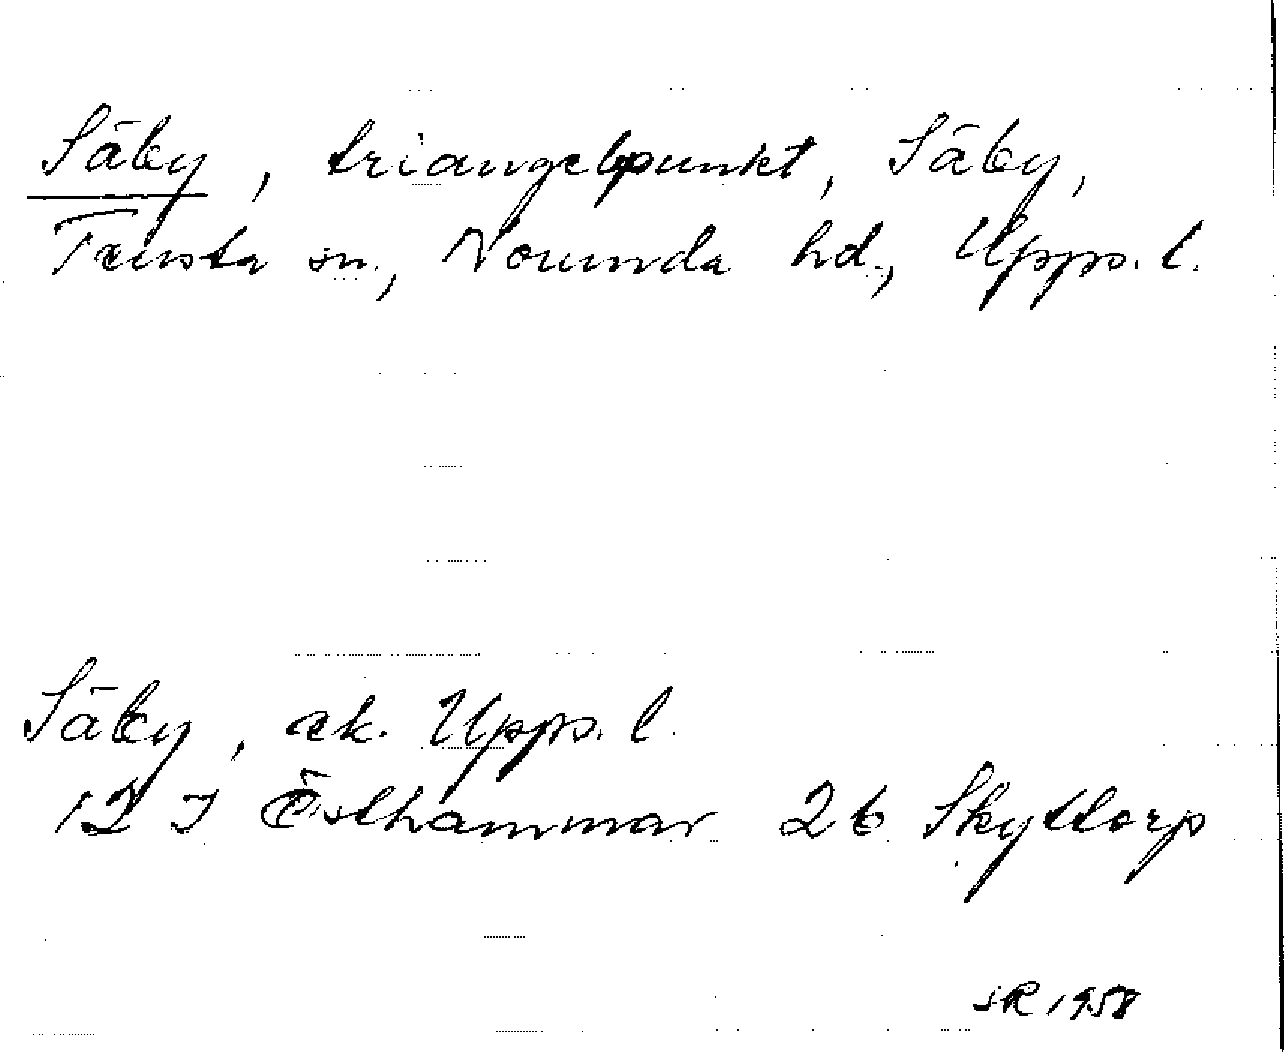 Säby, triangelpunkt, Säby,
Tensta sn., Norunda hd., Upps. l.
Säby, ek. Upps. l.
12 I Östhammar 2b Skyttorp
SR 1958